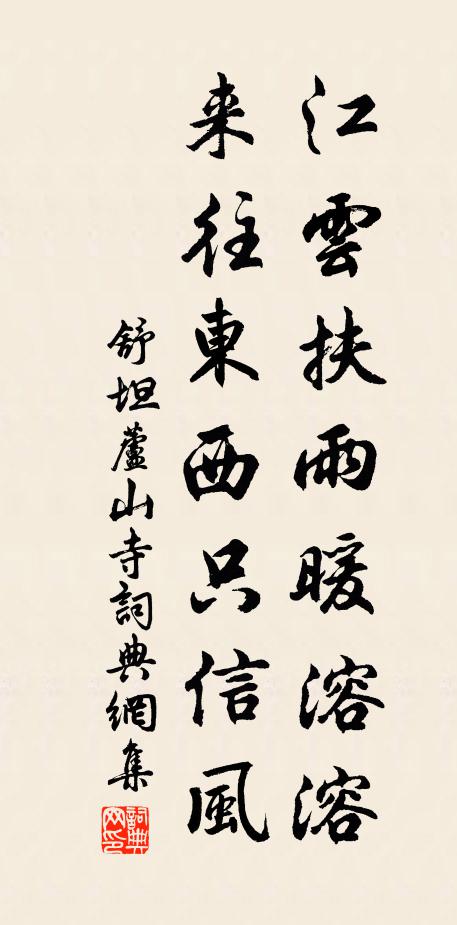 江雲扶雨暖溶溶
来往東西只信風
舒坦蘆山寺詞典網集
詞典网印